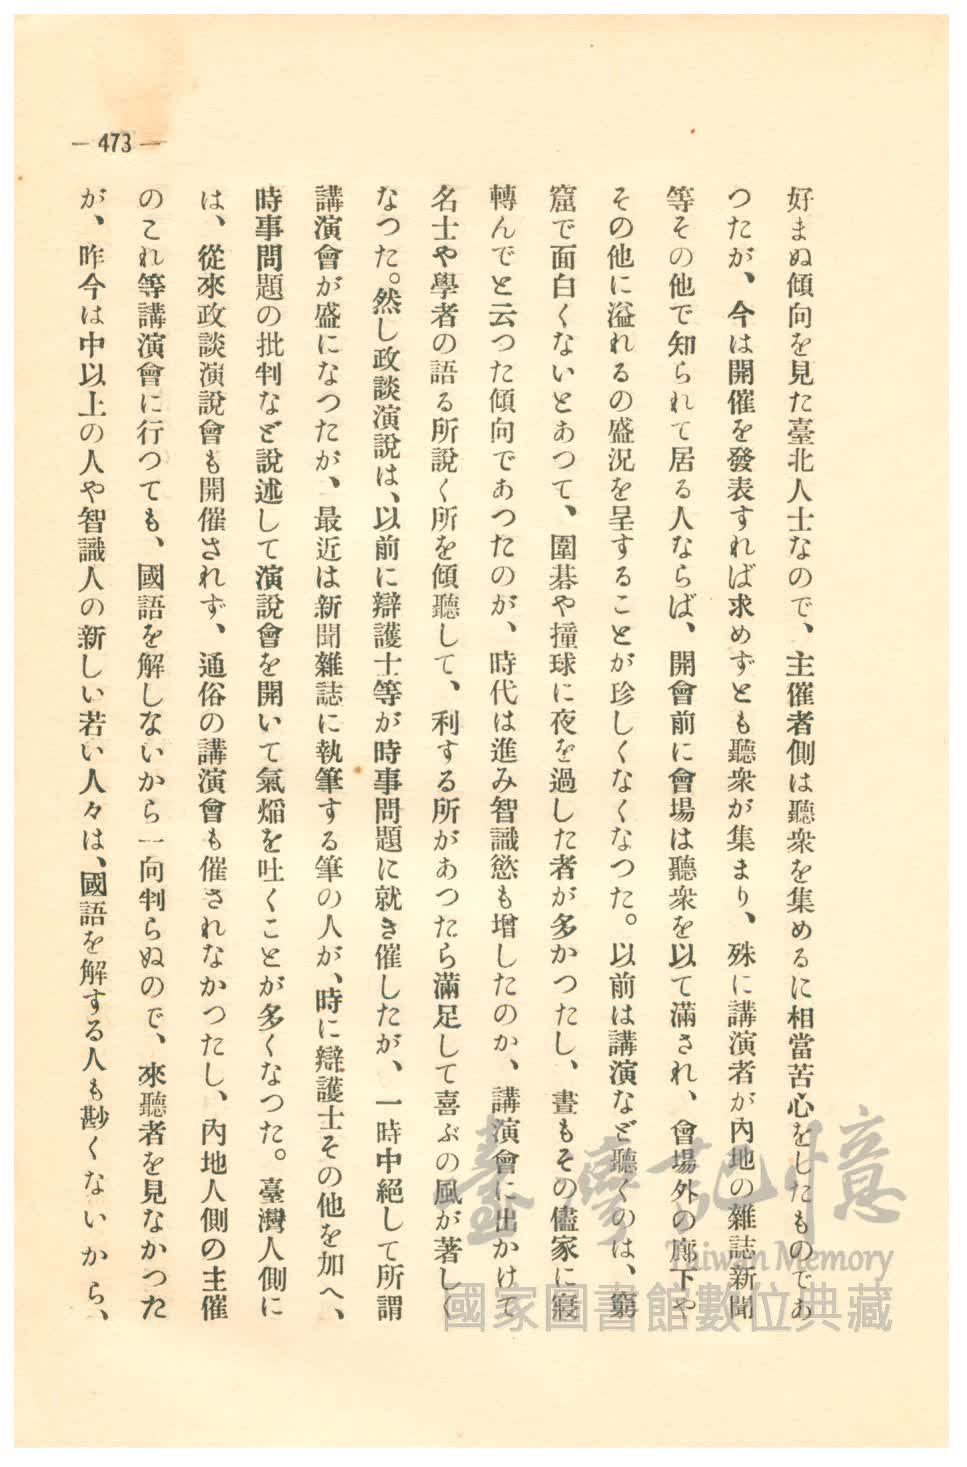 — 473 —
好まぬ傾向を見た臺北人士なので、主催者側は聽衆を集めるに相當苦心をしたものであ
つたが、今は開催を發表すれば求めずとも聽衆が集まり、殊に講演者が內地の雜誌新聞
等その他で知られて居る人ならば、開會前に會場は聽衆を以て滿され、會場外の廊下や
その他に溢れるの盛況を呈することが珍しくなくなつた。以前は講演など聽くのは、窮
窟で面白くないとあつて、圍碁や撞球に夜を過した者が多かつたし、晝もその儘家に寢
轉んでと云つた傾向であつたのが、時代は進み智識慾も增したのか、講演會に出かけて
名士や學者の語る所說く所を傾聽して、利する所があつたら滿足して喜ぶの風が著しく
なつた。然し政談演說は、以前に辯護士等が時事問題に就き催したが、一時中絕して所謂
講演會が盛になつたが、最近は新聞雜誌に執筆する筆の人が、時に辯護士その他を加へ、
時事問題の批判など說述して演說會を開いて氣焰を吐くことが多くなつた。臺灣人側に
は、從來政談演說會も開催されず、通俗の講演會も催されなかつたし、內地人側の主催
のこれ等講演會に行つても、國語を解しないから一向判らぬので、來聽者を見なかつた
が、昨今は中以上の人や智識人の新しい若い人々は、國語を解する人も尠くないから、
臺灣記憶
Taiwan Memory
國家圖書館數位典藏